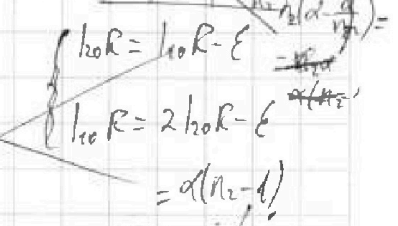 n₂(α - α/n₂) =
I₂₀R = I₁₀R - ℰ
α(n₂ -
I₁₀R = 2I₂₀R - ℰ
= α(n₂ - 1)